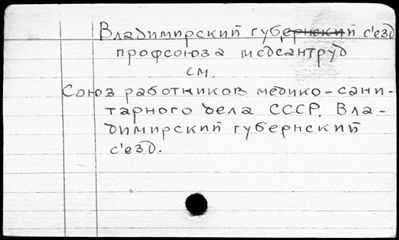 Владимирский губернский с'езд
профсоюза медсантруд
см.
Союз работников медико-сани-
тарного дела СССР. Вла-
димирский губернский
с'езд.